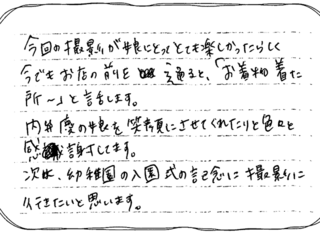 今回の撮影が娘にとってとても楽しかったらしく
今でもお店の前を通ると、「お着物着た
所〜」と話します。
内弁慶の娘を笑顔にさせてくれたりと色々と
感謝してます。
次は、幼稚園の入園式の記念に撮影に
行きたいと思います。